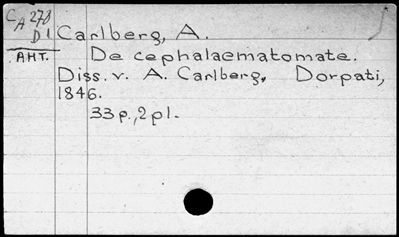 CA 278
D1 Carlberg, A.
AHT. De cephalaematomate.
Diss. v. A. Carlberg. Dorpati,
1846.
33 p., 2 pl.